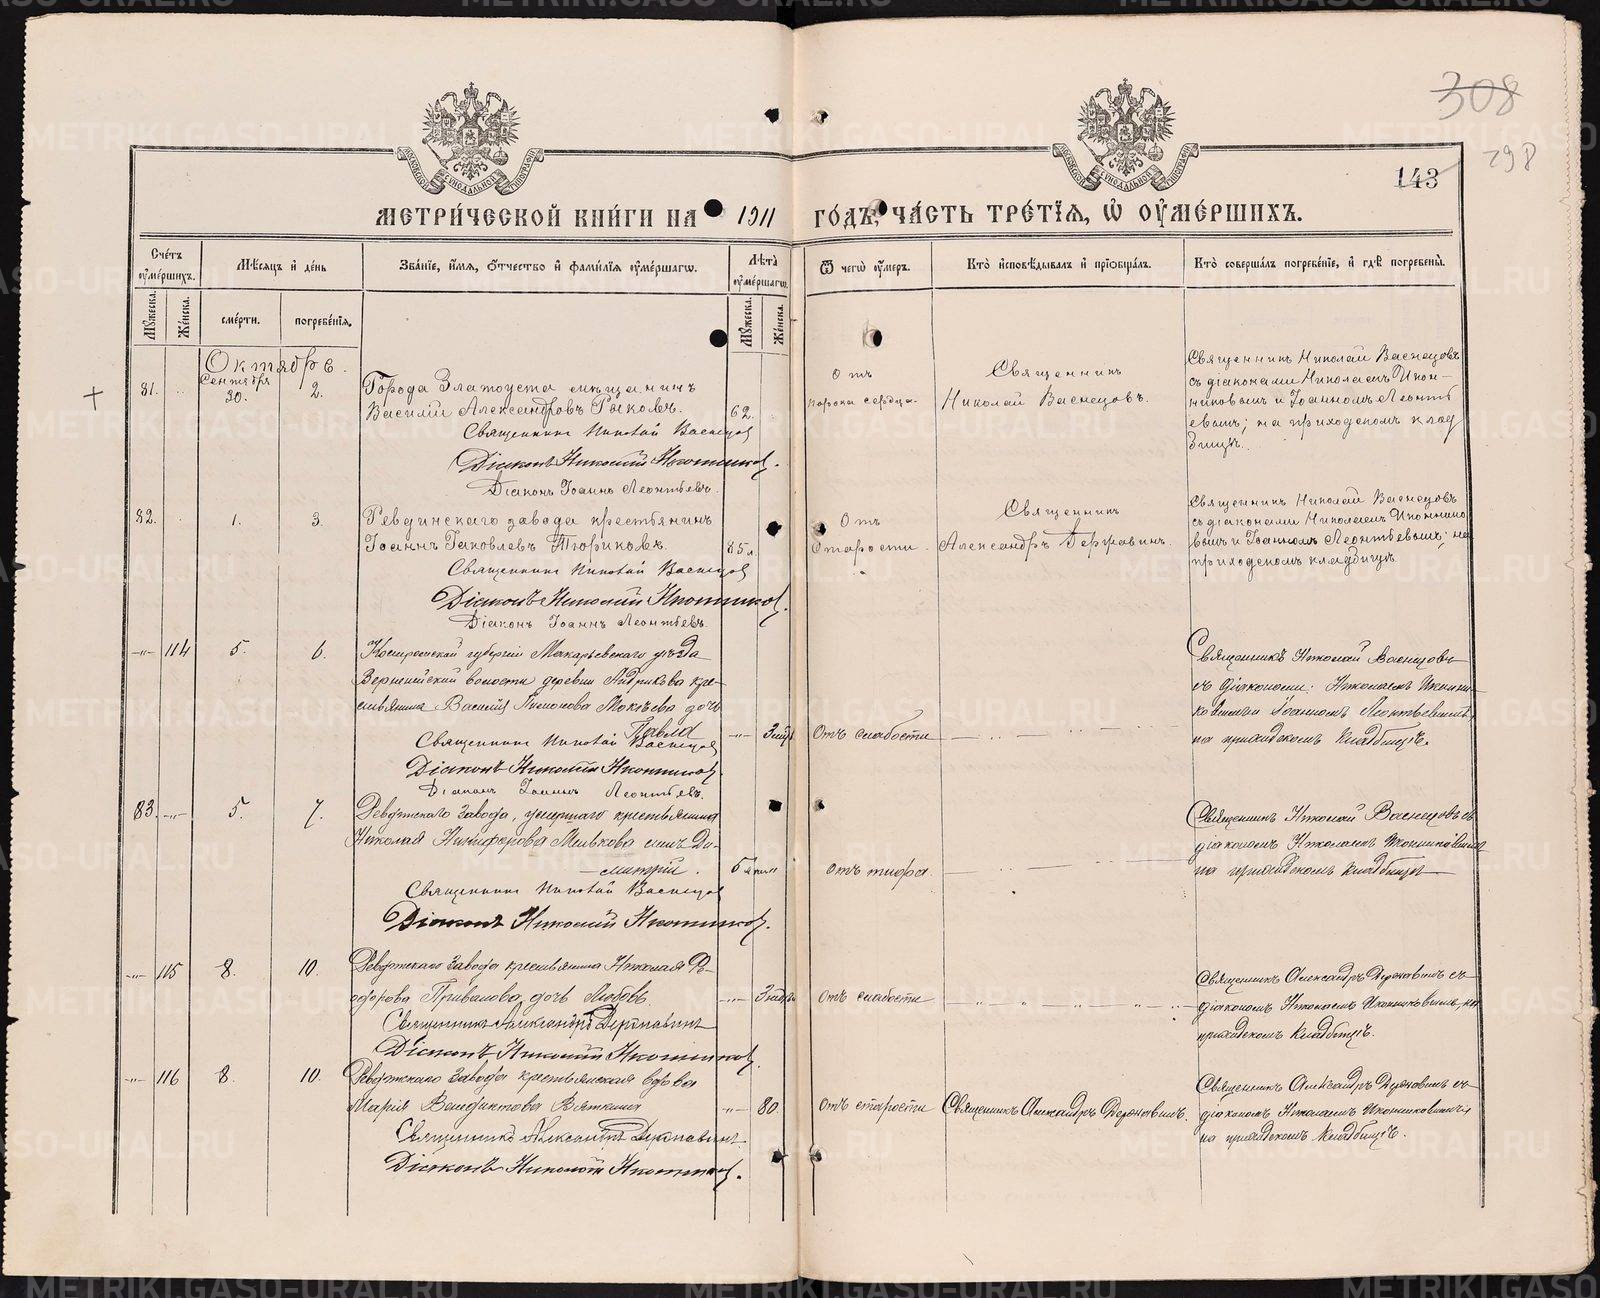 308
298
143
МЕТРИ́ЧЕСКОЙ КНИ́ГИ НА 1911 ГО́ДЪ, ЧА́СТЬ ТРЕ́ТЇѦ, Ѿ ОУ҆МЕ́РШИХЪ.
Сче́тъ оу҆ме́ршихъ.
Мѣ́сяцъ и҆ де́нь
Зва́нїе, и҆́мѧ, ѻ҆́тчество и҆ фами́лїѧ оу҆ме́ршагѡ.
Лѣ́та оу҆ме́ршагѡ.
Ѿ чегѡ̀ оу҆́меръ.
Кто̀ и҆сповѣ́дывалъ и҆ прїѡбща́лъ.
Кто̀ соверша́лъ погребе́нїе, и҆ гдѣ̀ погребены̀.
Мꙋ́жеска. Же́нска.
сме́рти. погребе́нїѧ.
Мꙋ́жеска. Же́нска.
Октябрь.
81. Сентября 30. 2.
Города Златоуста мѣщанинъ
Василій Александровъ
62.
Священникъ Николай Васнецовъ
Діаконъ Николай Иконниковъ.
Діаконъ Іоаннъ Леонтьевъ.
Отъ
порока сердца.
Священникъ
Николай Васнецовъ.
Священникъ Николай Васнецовъ
съ діаконами Николаемъ Икон-
никовымъ и Іоанномъ Леонть
евымъ; на приходскомъ клад
бищѣ.
82. 1. 3.
Ревдинскаго завода крестьянинъ
Іоаннъ Іаковлевъ Тюриковъ.
85 л.
Священникъ Николай Васнецовъ
Діаконъ Николай Иконниковъ.
Діаконъ Іоаннъ Леонтьевъ.
Отъ
Старости.
Священникъ
Александръ Державинъ.
Священникъ Николай Васнецовъ
съ діаконами Николаемъ Иконнико
вымъ и Іоанномъ Леонтьевымъ; на
приходскомъ кладбищѣ.
-„- 114 5. 6.
Костромской губерніи Макарьевскаго уѣзда
волости деревни кре-
стьянина Василія дочь
Павла
-„- 3 мѣс
Священникъ Николай Васнецовъ
Діаконъ Николай Иконниковъ.
Діаконъ Іоаннъ Леонтьевъ.
Отъ слабости
Священникъ Николай Васнецовъ
съ діаконами: Николаемъ Иконни-
ковымъ и Іоанномъ Леонтьевымъ,
на приходскомъ кладбищѣ.
83. -„- 5. 7.
Ревдинскаго завода, умершаго крестьянина
Николая Никифорова Мелькова сынъ Ди-
митрій.
5 лѣтъ
Священникъ Николай Васнецовъ
Діаконъ Николай Иконниковъ.
Отъ тифа.
Священникъ Николай Васнецовъ съ
діакономъ Николаемъ Иконниковымъ
на приходскомъ кладбищѣ
-„- 115 8. 10.
Ревдинскаго завода крестьянина Николая Ѳе-
одорова Привалова дочь Любовь.
-„- 3 мѣс
Священникъ Александръ Державинъ
Діаконъ Николай Иконниковъ.
Отъ слабости
Священникъ Александръ Державинъ съ
діакономъ Николаемъ Иконниковымъ, на
приходскомъ кладбищѣ.
-„- 116 8. 10.
Ревдинскаго завода крестьянская вдова
Марія Венедиктова Вяткина
-„- 80
Священникъ Александръ Державинъ
Діаконъ Николай Иконниковъ.
Отъ старости
Священникъ Александръ Державинъ.
Священникъ Александръ Державинъ съ
діакономъ Николаемъ Иконниковымъ,
на приходскомъ кладбищѣ.
METRIKI.GASO-URAL.RU